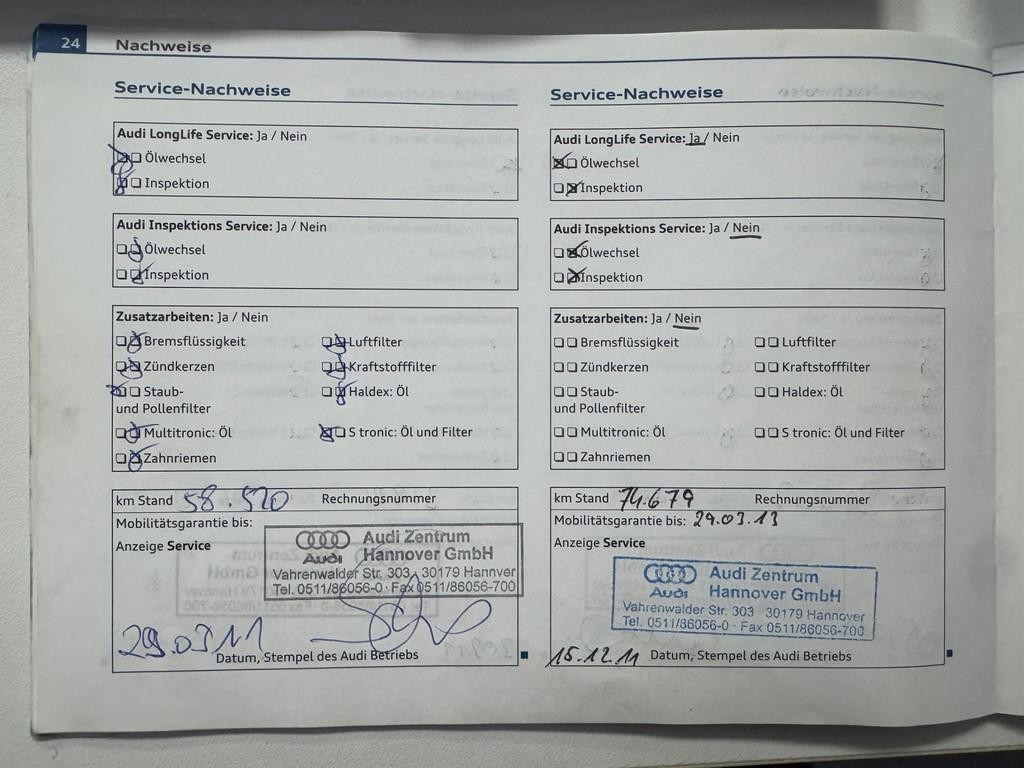 24 Nachweise
Service-Nachweise
Audi LongLife Service: Ja / Nein
Ölwechsel
Inspektion
Audi Inspektions Service: Ja / Nein
Ölwechsel
Inspektion
Zusatzarbeiten: Ja / Nein
Bremsflüssigkeit Luftfilter
Zündkerzen Kraftstofffilter
Staub- Haldex: Öl
und Pollenfilter
Multitronic: Öl S tronic: Öl und Filter
Zahnriemen
km Stand 58.520 Rechnungsnummer
Mobilitätsgarantie bis:
Anzeige Service
Audi Zentrum
Audi Hannover GmbH
Vahrenwalder Str. 303 · 30179 Hannver
Tel. 0511/86056-0 · Fax 0511/86056-700
29.03 11
Datum, Stempel des Audi Betriebs
Service-Nachweise
Audi LongLife Service: Ja / Nein
Ölwechsel
Inspektion
Audi Inspektions Service: Ja / Nein
Ölwechsel
Inspektion
Zusatzarbeiten: Ja / Nein
Bremsflüssigkeit Luftfilter
Zündkerzen Kraftstofffilter
Staub- Haldex: Öl
und Pollenfilter
Multitronic: Öl S tronic: Öl und Filter
Zahnriemen
km Stand 74.679 Rechnungsnummer
Mobilitätsgarantie bis: 29.03.13
Anzeige Service
Audi Zentrum
Audi Hannover GmbH
Vahrenwalder Str. 303 · 30179 Hannover
Tel. 0511/86056-0 · Fax 0511/86056-700
15.12.11 Datum, Stempel des Audi Betriebs